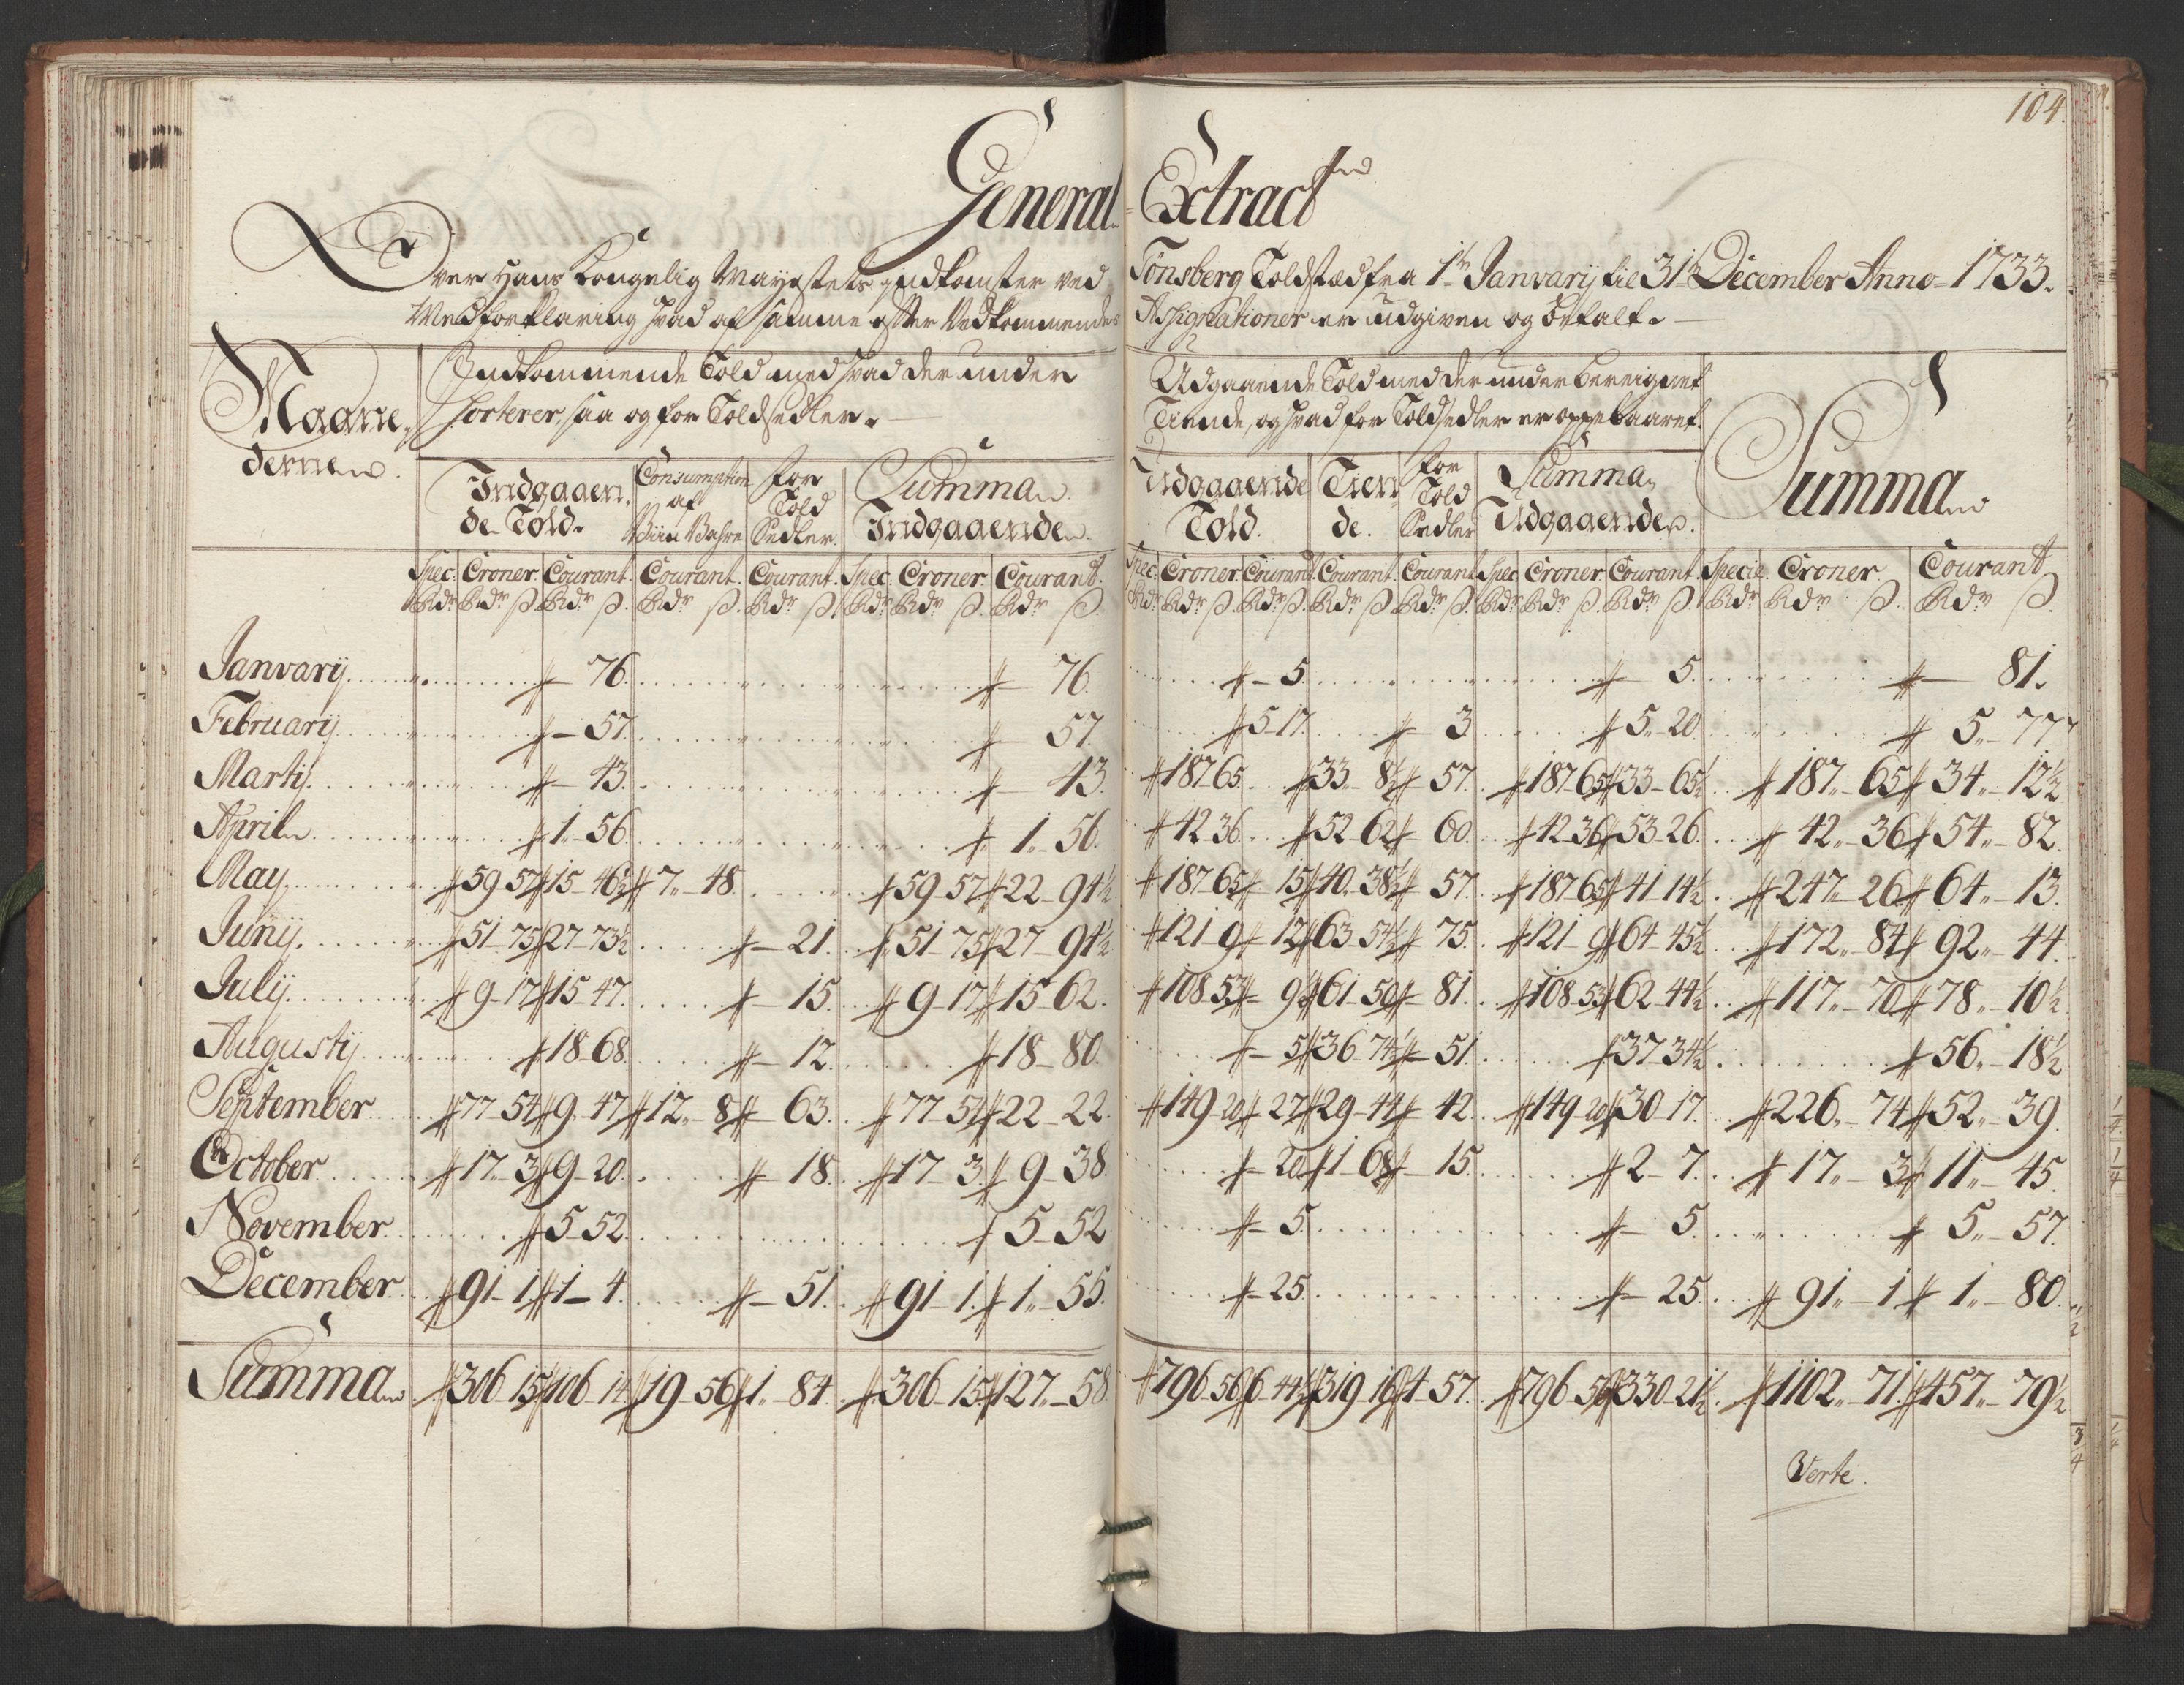 104.
General Extract
Over Hans Kongelig Mayestets Indkomster ved Tönsberg Toldsted fra 1te Janvarij til 31te December Anno 1733.
Med forklaring hvad af samme efter Vedkommendes Assignationer er udgiven og betalt.
Maanedernes.
Indkommende Told med hvad der under
Sorterer, saa og for Toldsedler.
Udgaaende Told med der under bereignet
Tiende, og hvad for Toldsedler er oppebaaret.
Summa
Indgaaende Told. Consumption af Viin Vahre For Told Sedler. Summa Indgaaende
Udgaaende Told. Tiende. For Told Sedler Summa Udgaaende.
Spec: Croner Courant. Courant. Courant. Spec: Croner Courant. Spec: Croner Courant Courant. Courant Spec: Croner Courant. Specie Croner Courant
Rdr Rdr ß. Rdr ß. Rdr ß. Rdr ß. Rdr Rdr ß. Rdr ß. Rdr Rdr ß. Rdr ß. Rdr ß. Rdr ß. Rdr Rdr ß. Rdr ß. Rdr Rdr ß. Rdr ß.
Janvarij # - 76. # 76. # - 5. # 5. # 81.
Februarij # - 57. # 57. # 5 17. # 3 # 5 - 20. # 5 - 77
Martij # - 43. # 43. # 187 65. # 33 - 8½ # 57. # 187 - 65 # 33 - 65½ # 187 - 65 # 34 - 12½
April # 1 - 56. # 1 - 56. # 42 36. # 52 - 62 # 60. # 42 36 # 53 - 26. # 42 - 36 # 54 - 82.
May # 59 57 # 15 - 46½ # 7 - 48. # 59 - 57 # 22 - 94½ # 187 65 # 15 # 40. 38½ # 57. # 187 65 # 41 14½. # 247 - 26 # 64 - 13.
Junij. # 51 - 75 # 27 - 73½ # - 21. # 51 - 75 # 27 - 94½ # 121 - 9 # 12 # 63. 54½ # 75. # 121 - 9 # 64 - 45½ # 172 - 84 # 92 - 44.
Julij # 9 - 17 # 15 - 47. # - 15. # 9 - 17 # 15 - 62. # 108 53 # - 9½ # 61 - 50 # - 81. # 108 - 53 # 62 - 44½. # 117 - 70 # 78 - 10½.
Augustij # 18 - 68. # - 12. # 18 - 80. # - 5 # 36. 74½ # - 51. # 37 34½. # 56 - 18½
September # 77 - 54 # 9 - 47 # 12 - 8 # - 63. # 77 - 54 # 22 - 22. # 149 - 20 # - 27 # 29 - 44 # - 42. # 149 - 20 # 30 - 17. # 226 - 74 # 52 - 39.
October # 17 - 3 # 9 - 20. # - 18. # 17 - 3. # 9 - 38. # - 20 # 1 - 68 # - 15. # 2 - 7. # 17 - 3 # 11 - 45.
November # 5 - 52. # 5 - 52 # - 5. # - 5. # 5 - 57.
December # 91 - 1. # 1 - 4. # - 51. # 91 - 1. # 1 - 55. # - 25. # - 25. # 91 - 1 # 1 - 80.
Summa # 306 15 # 106 14 # 19 - 56 # 1 - 84. # 306 - 15. # 127 - 58. # 796 56 # 6 - 44½ # 319 - 16 # 4 - 57. # 796 - 56 # 330 - 21½. # 1102 - 71. # 457 - 79½
Verte.